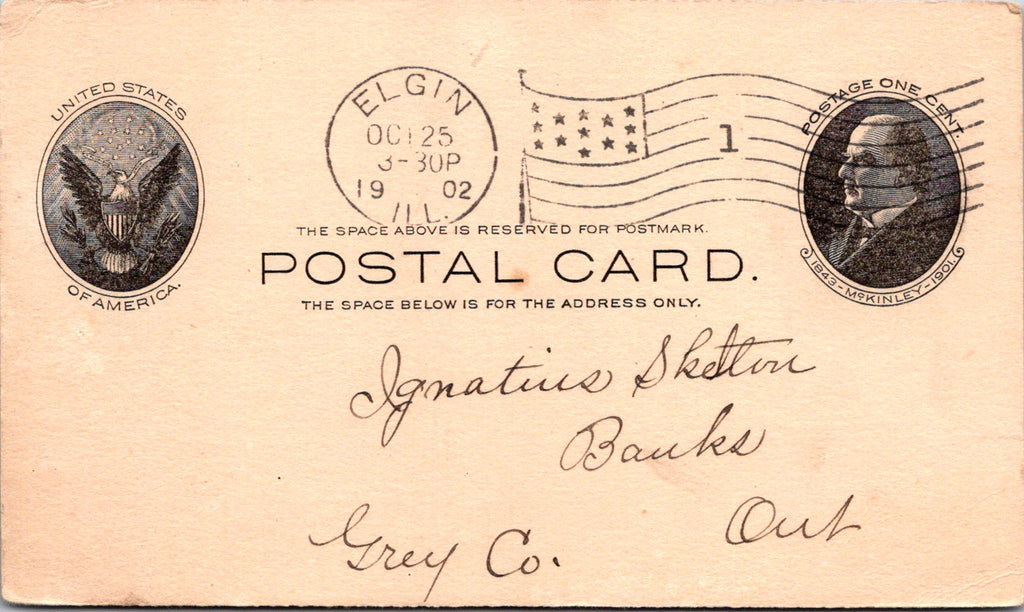 UNITED STATES
OF AMERICA.
ELGIN
OCT 25
3-30P
19 02
ILL.
1
POSTAGE ONE CENT.
1843-McKINLEY-1901.
THE SPACE ABOVE IS RESERVED FOR POSTMARK.
POSTAL CARD.
THE SPACE BELOW IS FOR THE ADDRESS ONLY.
Ignatius Skelton
Banks
Grey Co. Ont